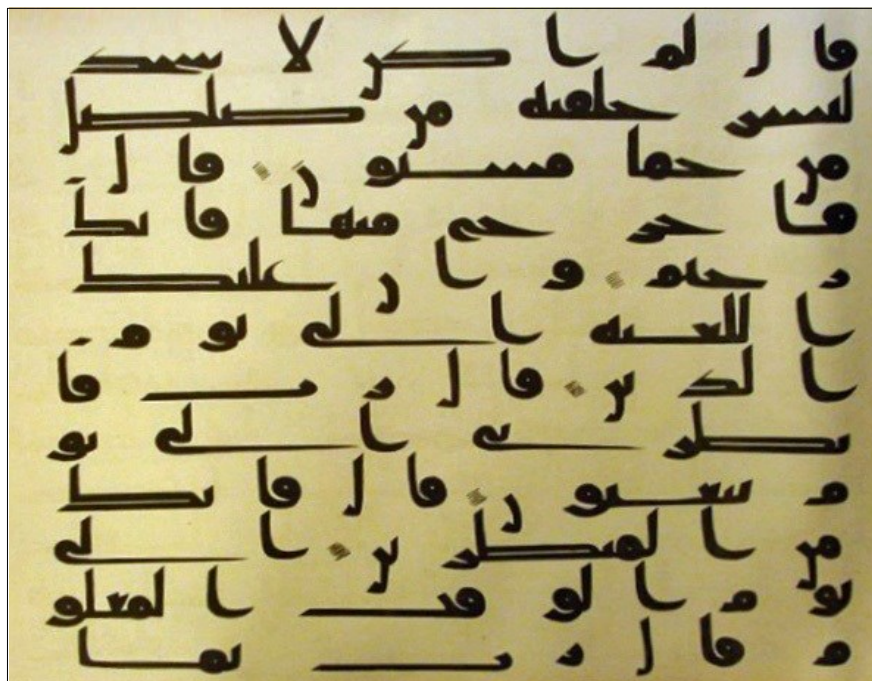 قال لم اكن لاسجد
لبشر خلقته من صلصل
من حما مسنون قال
فاخرج منها فانك
رجيم وان عليك
اللعنه الى يوم
الدين قال رب فا
نظرنى الى يو
م يبعثون قال فانك
من المنظرين الى
يوم الوقت المعلو
م قال رب بما